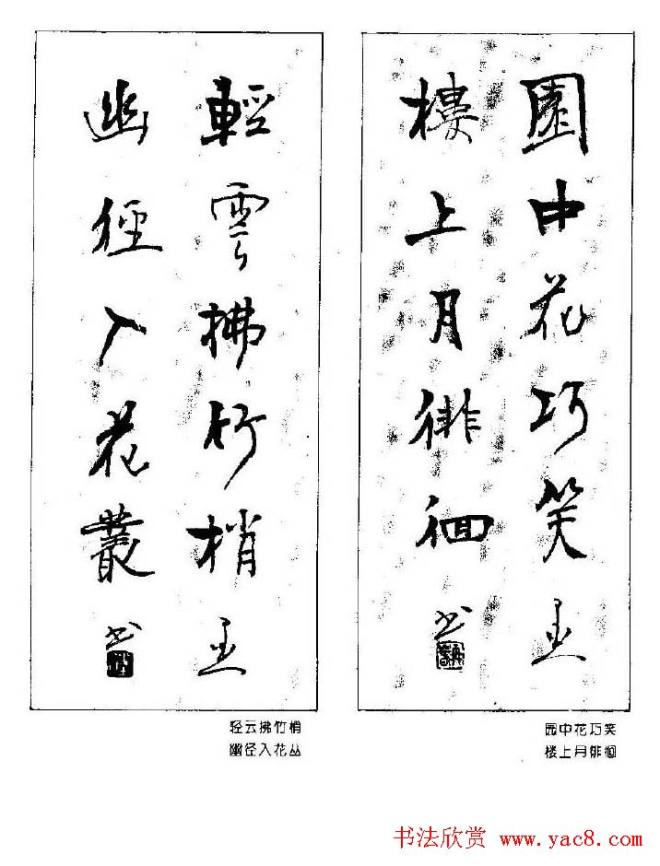 園中花巧笑
樓上月徘徊 书
輕雲拂竹梢
幽徑入花叢 书
园中花巧笑
楼上月徘徊
轻云拂竹梢
幽径入花丛
书法欣赏 www.yac8.com